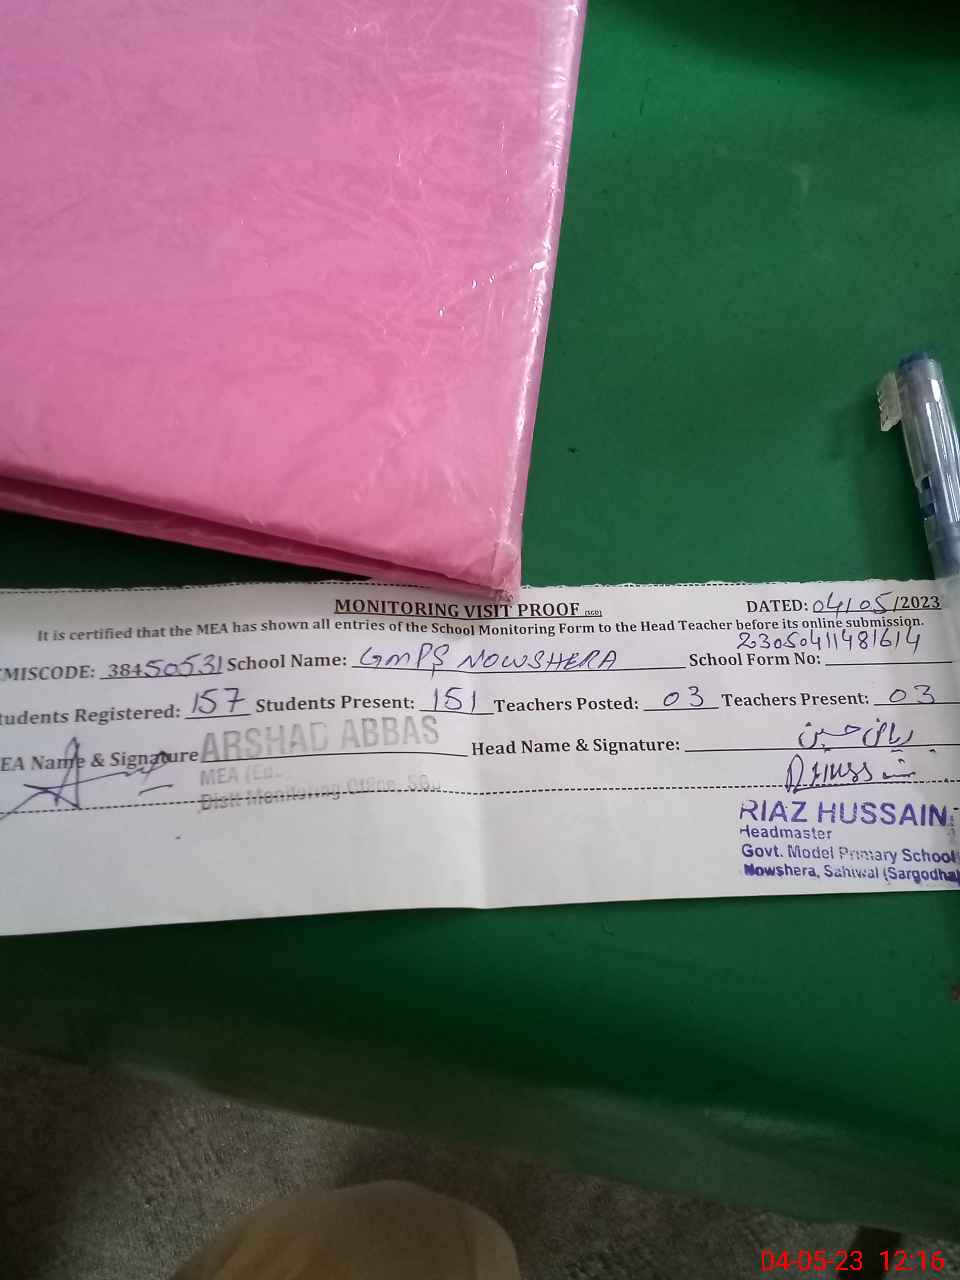 MONITORING VISIT PROOF (SGD) DATED: 04/05/2023
It is certified that the MEA has shown all entries of the School Monitoring Form to the Head Teacher before its online submission.
MISCODE: 38450531 School Name: GMPS NOWSHERA School Form No: 2305041148 1614
tudents Registered: 157 Students Present: 151 Teachers Posted: 03 Teachers Present: 03
EA Name & Signature ARSHAD ABBAS Head Name & Signature: ریاض حسین
MEA (Ed..
Distt Monitoring Office, SG
RIAZ HUSSAIN
Headmaster
Govt. Model Primary School
Nowshera, Sahiwal (Sargodha)
04-05-23 12:16